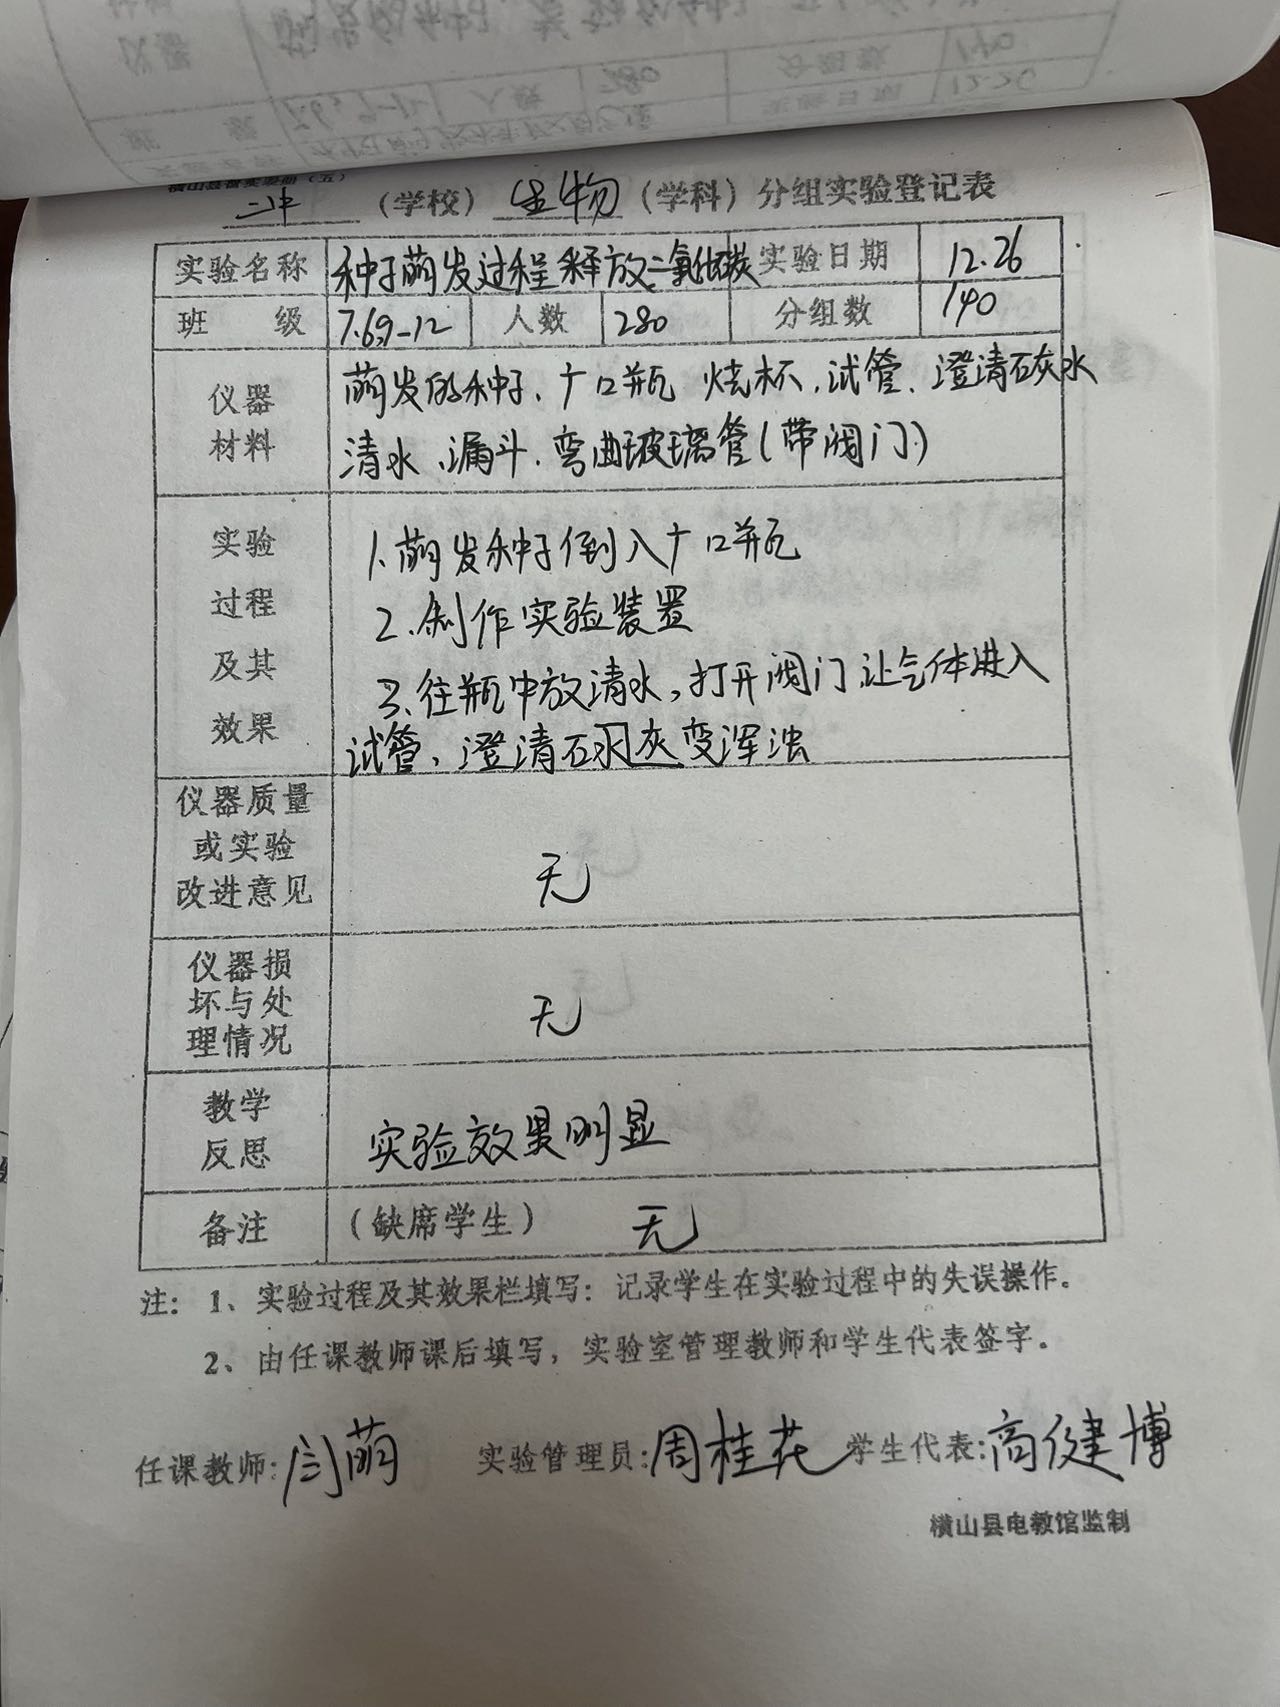 横山县教实验册（五）
二中（学校）生物（学科）分组实验登记表
实验名称 种子萌发过程释放二氧化碳 实验日期 12.26
班级 7.6,9-12 人数 280 分组数 140
仪器材料
萌发的种子、广口瓶 烧杯、试管、澄清石灰水
清水、漏斗、弯曲玻璃管(带阀门)
实验过程及其效果
1、萌发种子倒入广口瓶
2、制作实验装置
3、往瓶中放清水，打开阀门让气体进入
试管、澄清石水灰变浑浊
仪器质量或实验改进意见
无
仪器损坏与处理情况
无
教学反思
实验效果明显
备注 （缺席学生） 无
注：1、实验过程及其效果栏填写：记录学生在实验过程中的失误操作。
2、由任课教师课后填写，实验室管理教师和学生代表签字。
任课教师：闫萌 实验管理员：周桂花 学生代表：高健博
横山县电教馆监制